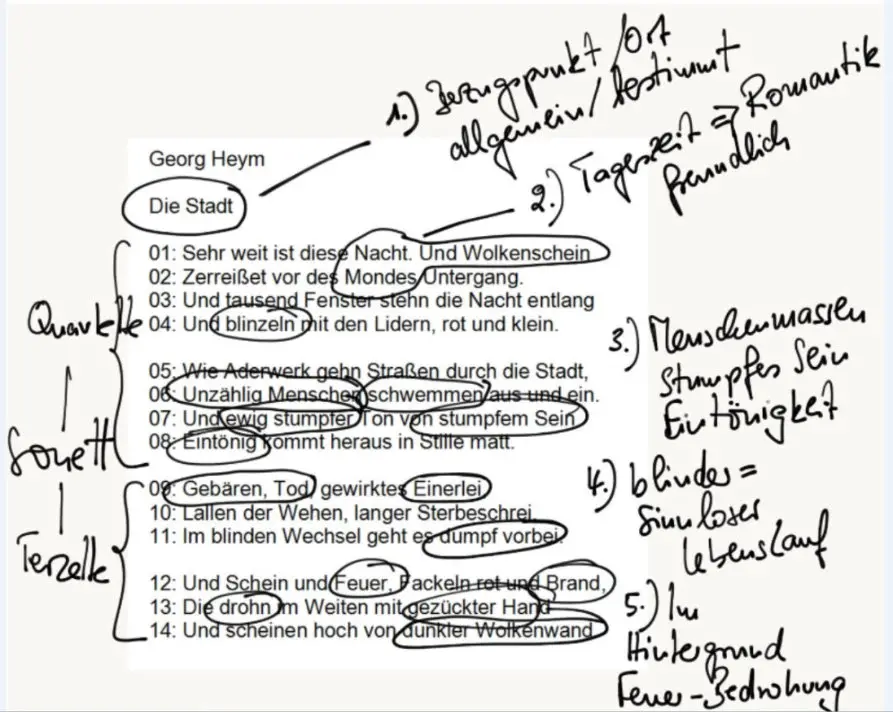 1.) Bezugspunkt / Ort
allgemein / bestimmt
2.) Tageszeit => Romantik
freundlich
Georg Heym
Die Stadt
01: Sehr weit ist diese Nacht. Und Wolkenschein
02: Zerreißet vor des Mondes Untergang.
03: Und tausend Fenster stehn die Nacht entlang
04: Und blinzeln mit den Lidern, rot und klein.
05: Wie Aderwerk gehn Straßen durch die Stadt,
06: Unzählig Menschen schwemmen aus und ein.
07: Und ewig stumpfer Ton von stumpfem Sein
08: Eintönig kommt heraus in Stille matt.
09: Gebären, Tod, gewirktes Einerlei
10: Lallen der Wehen, langer Sterbeschrei,
11: Im blinden Wechsel geht es dumpf vorbei.
12: Und Schein und Feuer, Fackeln rot und Brand,
13: Die drohn im Weiten mit gezückter Hand
14: Und scheinen hoch von dunkler Wolkenwand.
Quartette
Sonett
Terzette
3.) Menschenmassen
Stumpfes Sein
Eintönigkeit
4.) blinder =
sinnloser
Lebenslauf
5.) Im
Hintergrund
Feuer-Bedrohung